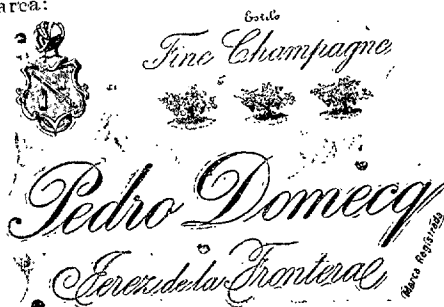 arca:
Estilo
Fine Champagne
Pedro Domecq
Jerez de la Frontera
Marca Registrada